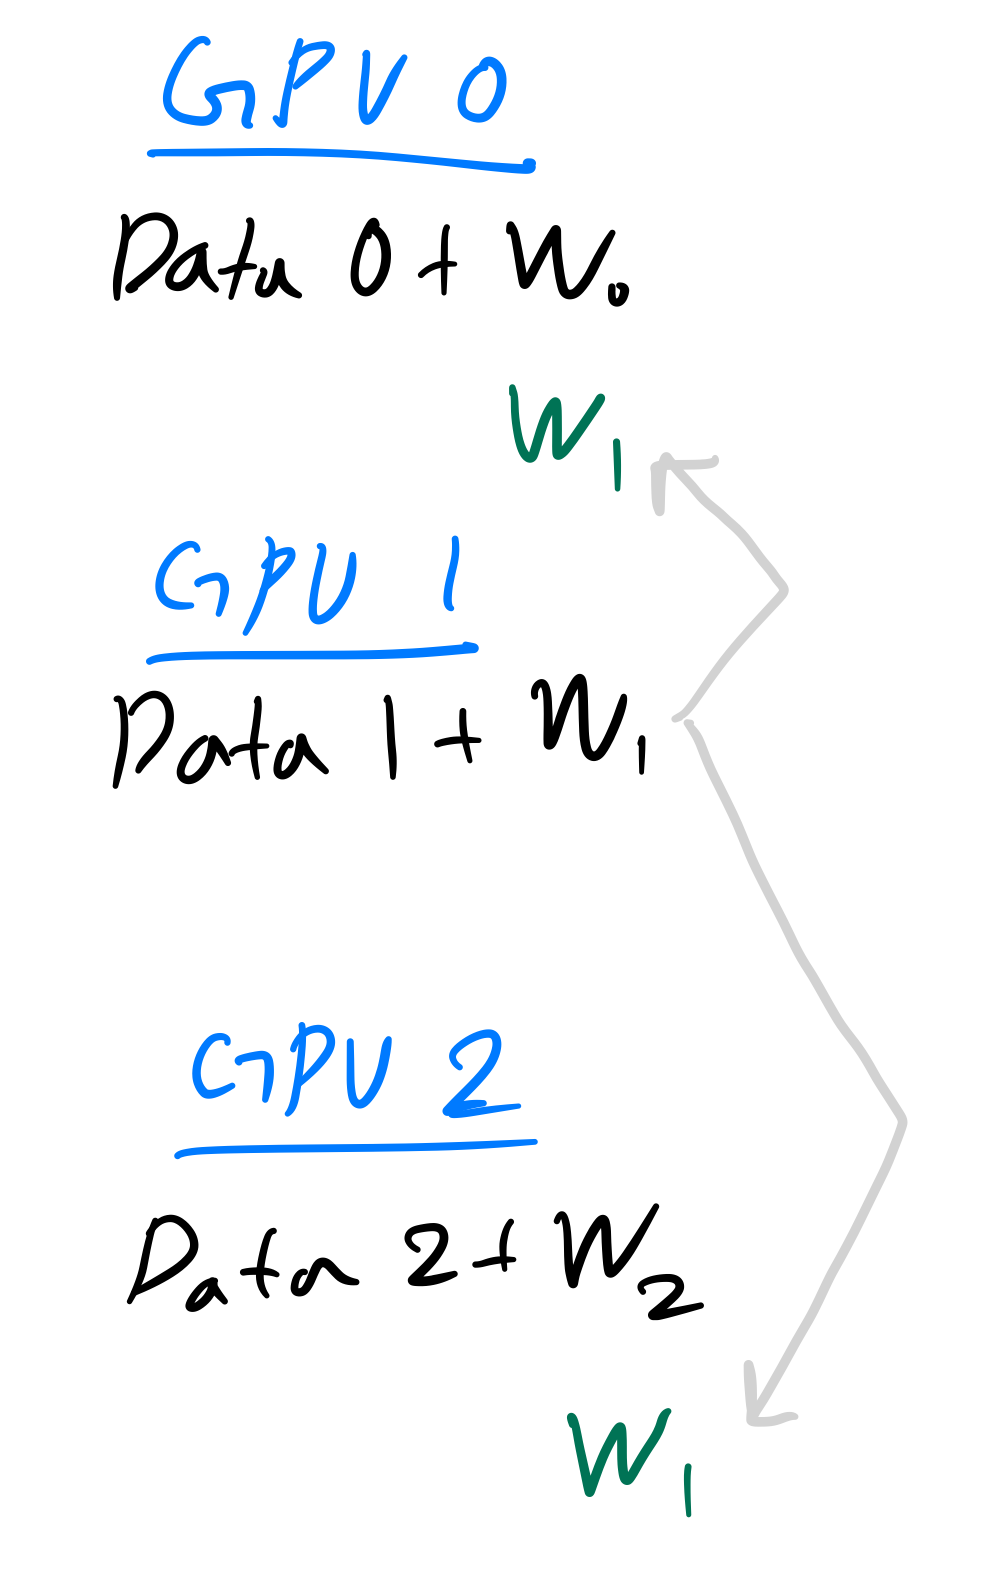 GPU 0
Data 0 + W₀
W₁
GPU 1
Data 1 + W₁
GPU 2
Data 2 + W₂
W₁